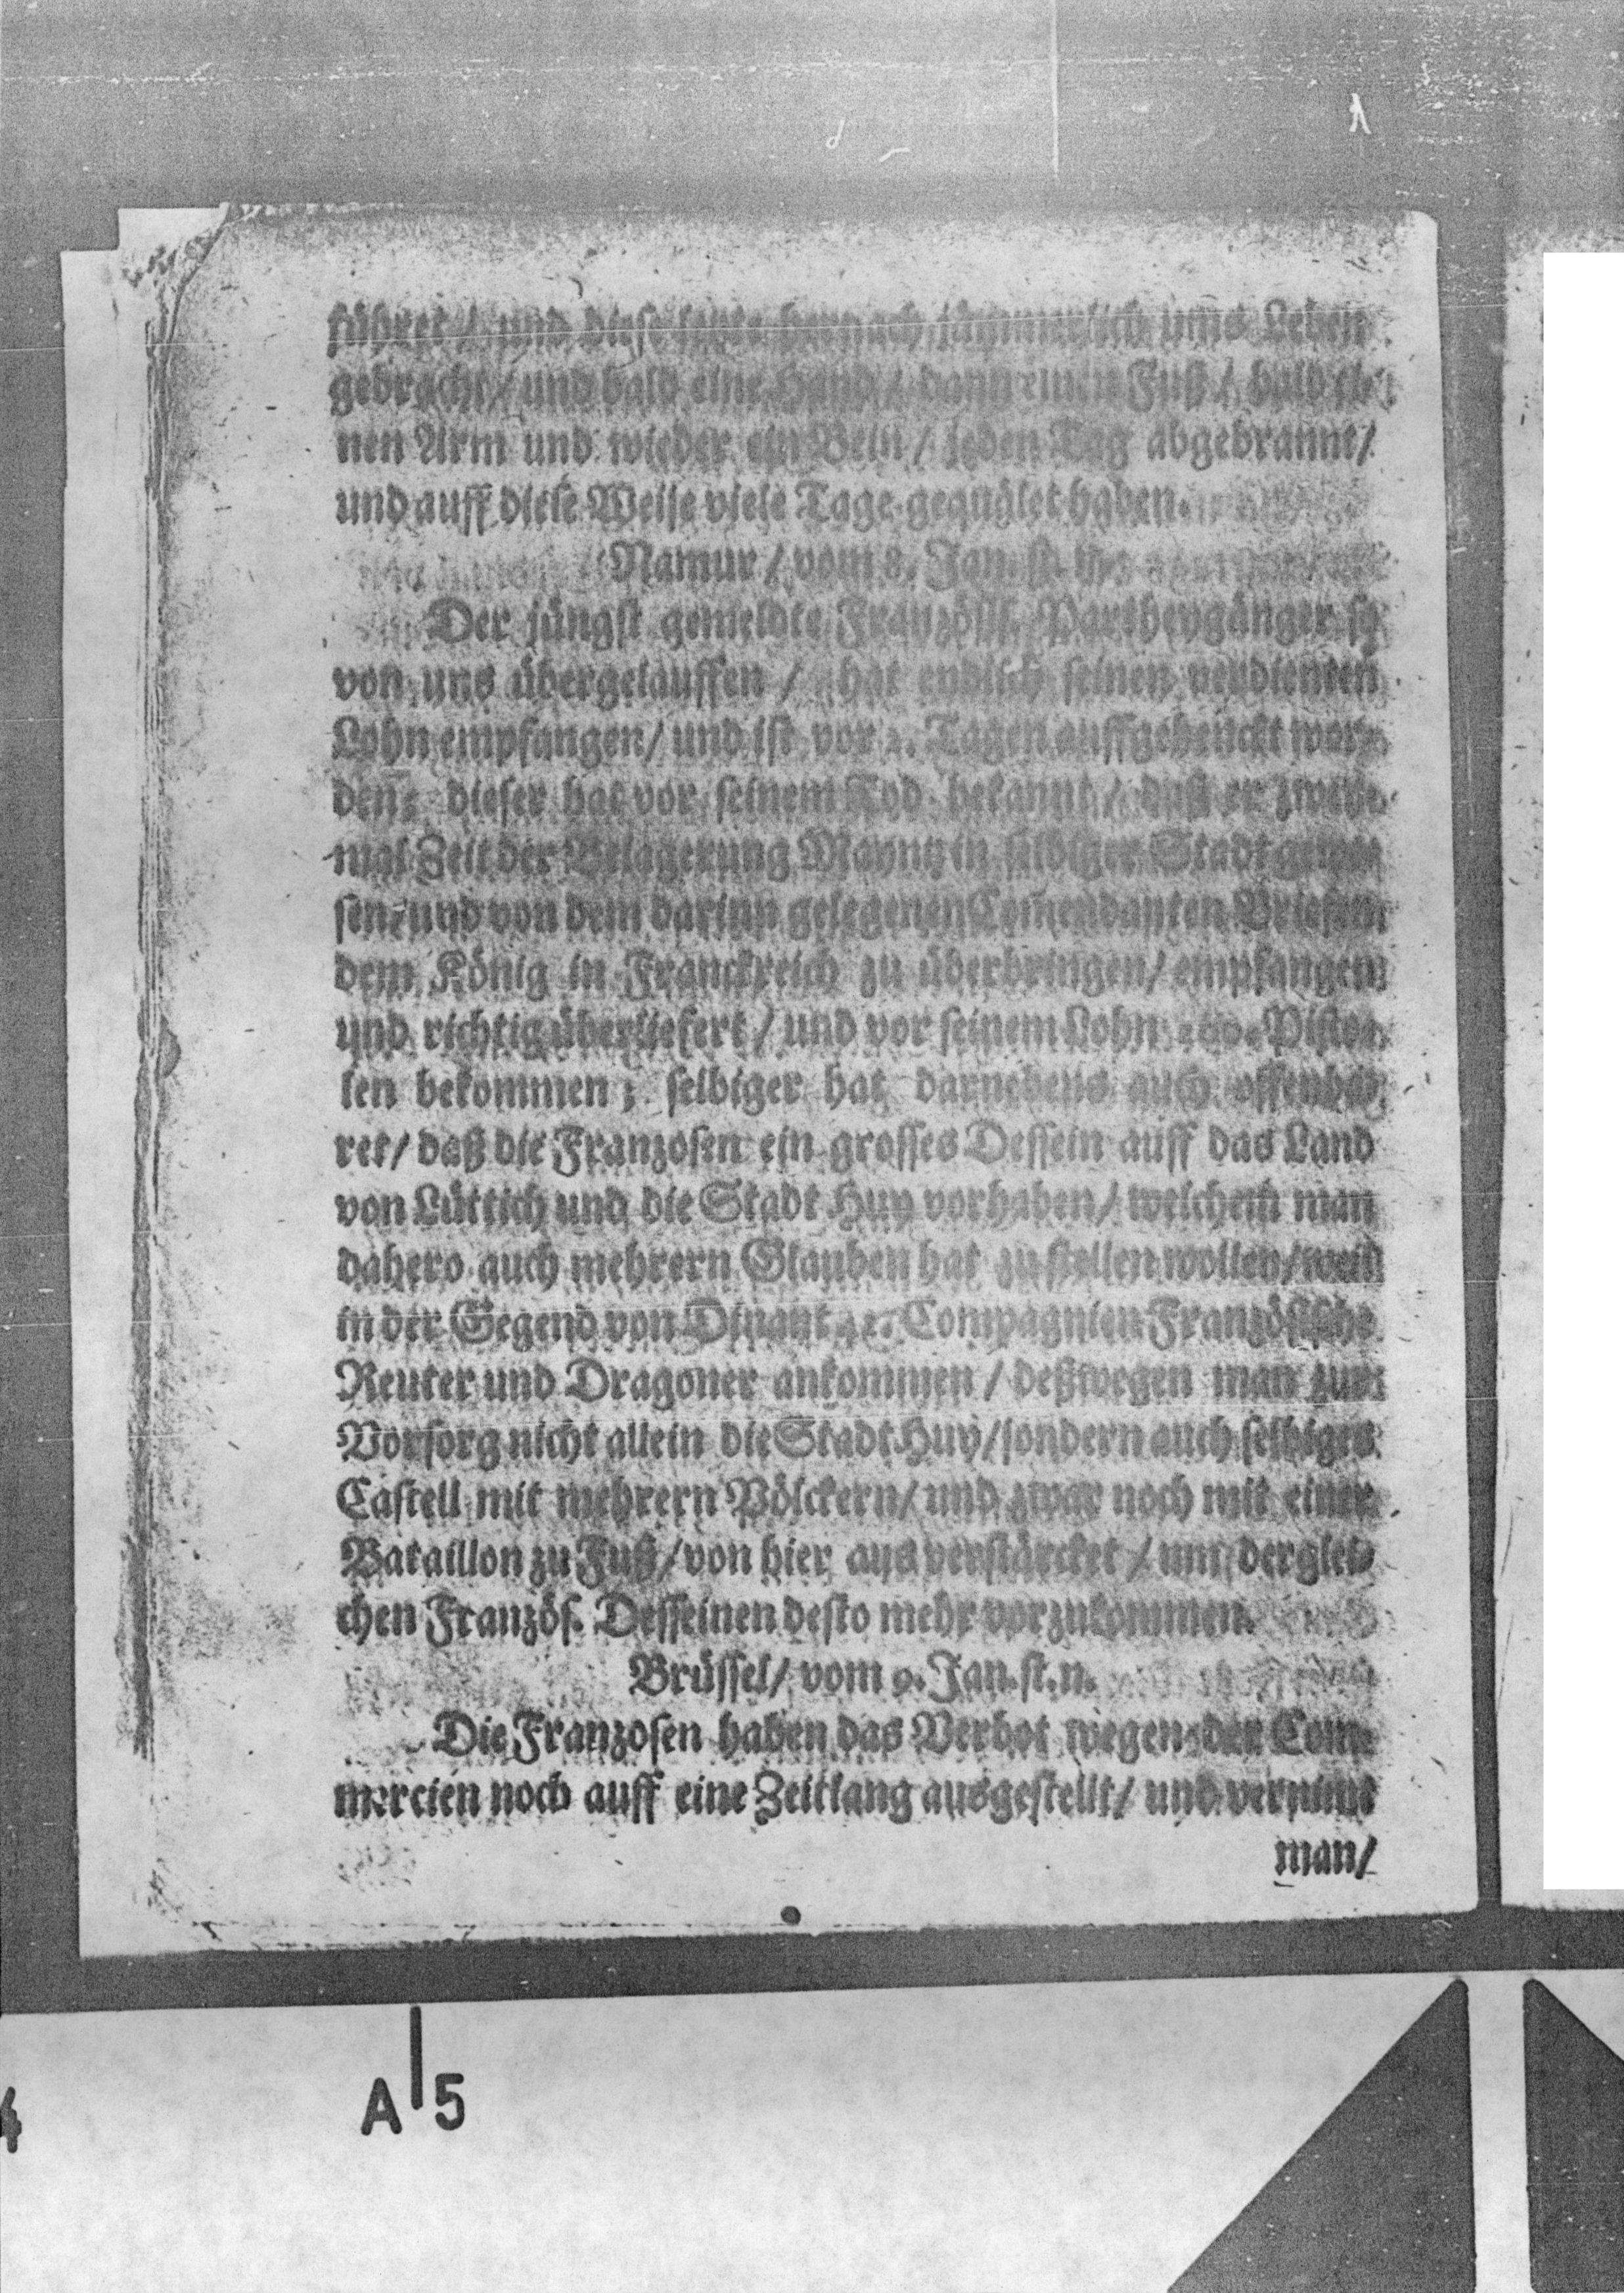 führet / und diese leute hernach jämmerlich ums Leben
gebracht / und bald eine Hand / dann einen Fuß / bald ei-
nen Arm und wieder ein Bein / jeden Tag abgebrannt /
und auff diese Weise viele Tage gequälet haben.
Namur / vom 8. Jan. st. n.
Der jüngst gemeldte Französis. Partheygänger so
von uns übergelauffen / hat endlich seinen verdienten
Lohn empfangen / und ist vor 2. Tagen auffgehenckt wor-
den; dieser hat vor seinem Tod bekannt / daß er zwey-
mal Zeit der Belagerung Mayntz in selbiger Stadt gewe-
sen / und von dem darinn gelegenen Com̃endanten Briefe
dem König in Franckreich zu überbringen / empfangen
und richtig überliefert / und vor seinem Lohn Pisto-
len bekommen; selbiger hat darnebens auch offenba-
ret / daß die Franzosen ein grosses Dessein auff das Land
von Lüttich und die Stadt Huy vorhaben / welchem man
dahero auch mehrern Glauben hat zu stellen wollen / weil
in der Gegend von Dinant Compagnien Französische
Reuter und Dragoner ankommen / deßwegen man zur
Vorsorg nicht allein die Stadt Huy / sondern auch selbiges
Castell mit mehrern Völckern / und zwar noch mit einer
Bataillon zu Fuß / von hier aus verstärcket / um derglei-
chen Französ. Desseinen desto mehr vorzukommen.
Brüssel / vom 9. Jan. st. n.
Die Franzosen haben das Verbot wegen der Com-
mercien noch auff eine Zeitlang ausgestellt / und vernimt
man /
A 5
4